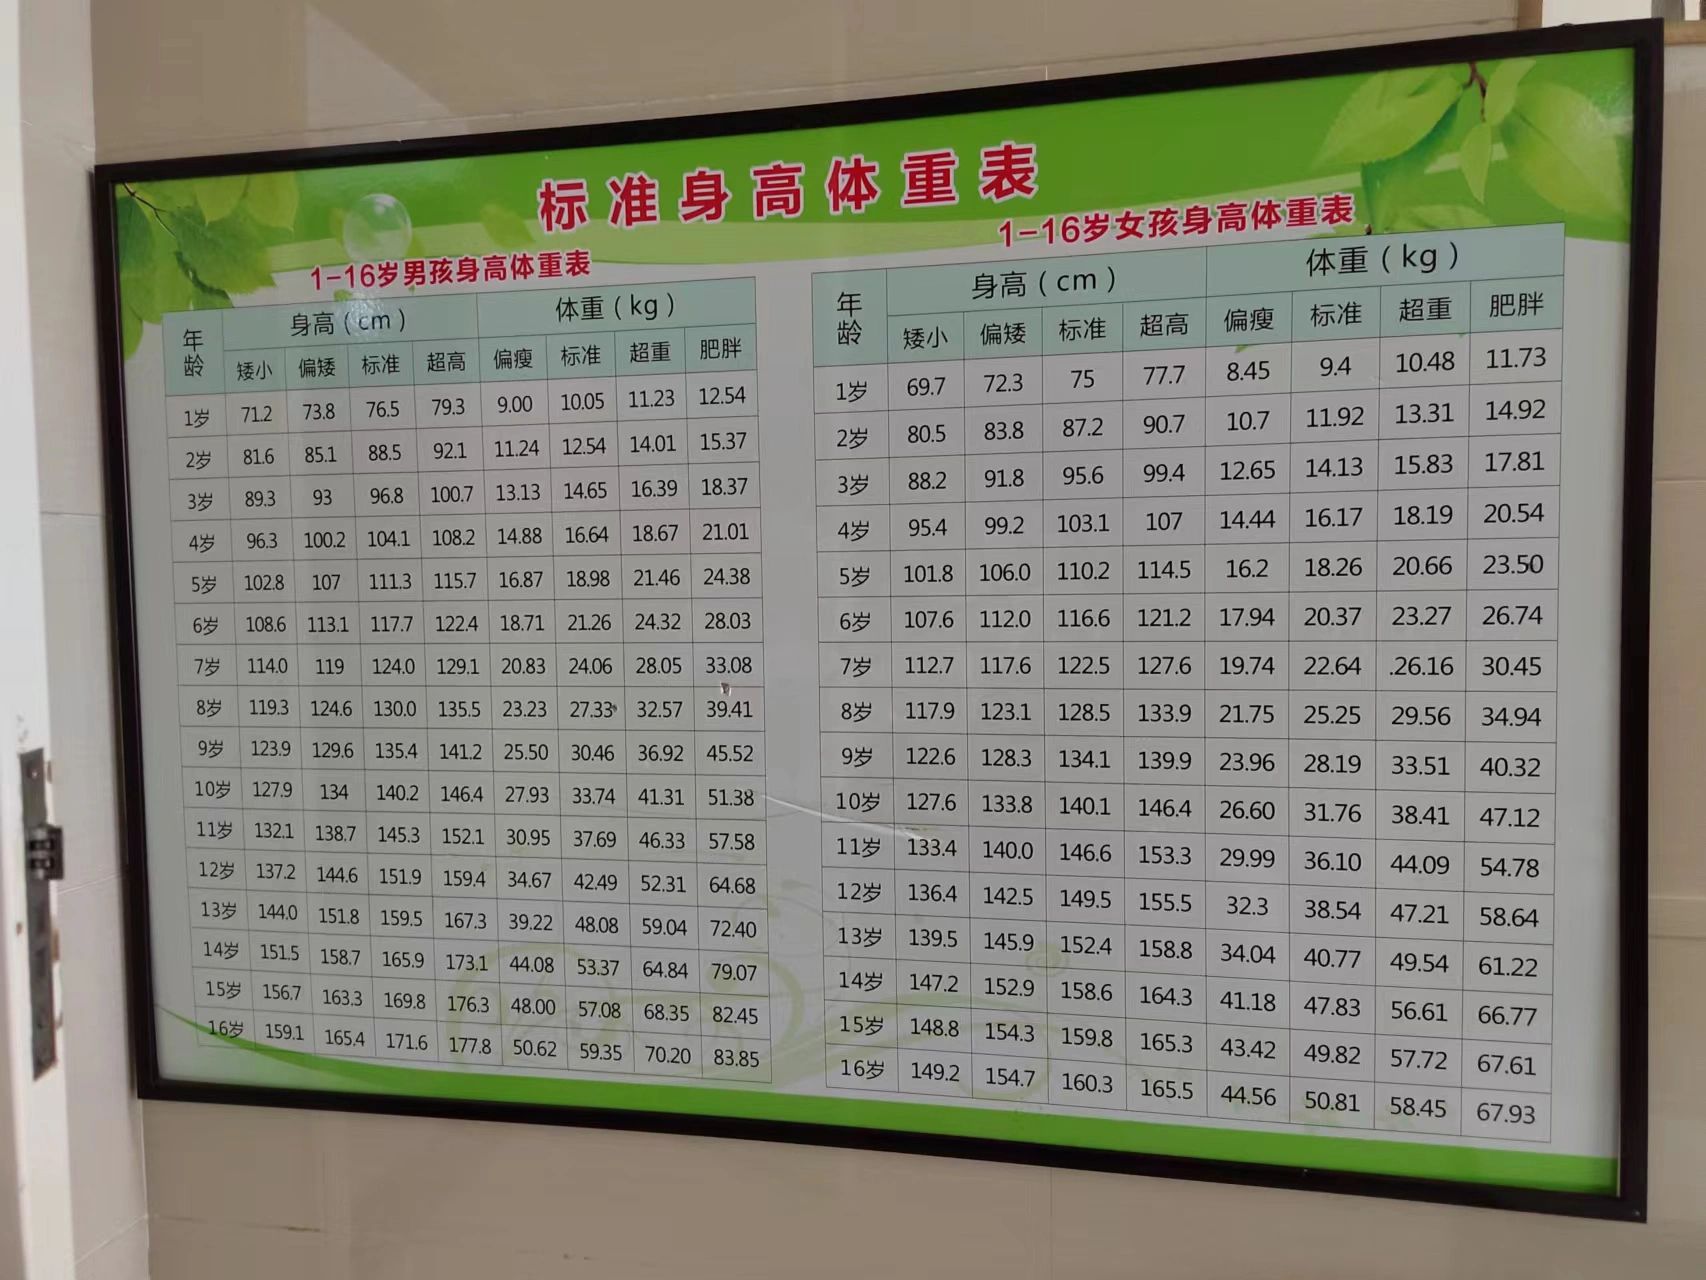 标准身高体重表
1-16岁男孩身高体重表
年龄 身高(cm) 体重(kg)
矮小 偏矮 标准 超高 偏瘦 标准 超重 肥胖
1岁 71.2 73.8 76.5 79.3 9.00 10.05 11.23 12.54
2岁 81.6 85.1 88.5 92.1 11.24 12.54 14.01 15.37
3岁 89.3 93 96.8 100.7 13.13 14.65 16.39 18.37
4岁 96.3 100.2 104.1 108.2 14.88 16.64 18.67 21.01
5岁 102.8 107 111.3 115.7 16.87 18.98 21.46 24.38
6岁 108.6 113.1 117.7 122.4 18.71 21.26 24.32 28.03
7岁 114.0 119 124.0 129.1 20.83 24.06 28.05 33.08
8岁 119.3 124.6 130.0 135.5 23.23 27.33 32.57 39.41
9岁 123.9 129.6 135.4 141.2 25.50 30.46 36.92 45.52
10岁 127.9 134 140.2 146.4 27.93 33.74 41.31 51.38
11岁 132.1 138.7 145.3 152.1 30.95 37.69 46.33 57.58
12岁 137.2 144.6 151.9 159.4 34.67 42.49 52.31 64.68
13岁 144.0 151.8 159.5 167.3 39.22 48.08 59.04 72.40
14岁 151.5 158.7 165.9 173.1 44.08 53.37 64.84 79.07
15岁 156.7 163.3 169.8 176.3 48.00 57.08 68.35 82.45
16岁 159.1 165.4 171.6 177.8 50.62 59.35 70.20 83.85
1-16岁女孩身高体重表
年龄 身高(cm) 体重(kg)
矮小 偏矮 标准 超高 偏瘦 标准 超重 肥胖
1岁 69.7 72.3 75 77.7 8.45 9.4 10.48 11.73
2岁 80.5 83.8 87.2 90.7 10.7 11.92 13.31 14.92
3岁 88.2 91.8 95.6 99.4 12.65 14.13 15.83 17.81
4岁 95.4 99.2 103.1 107 14.44 16.17 18.19 20.54
5岁 101.8 106.0 110.2 114.5 16.2 18.26 20.66 23.50
6岁 107.6 112.0 116.6 121.2 17.94 20.37 23.27 26.74
7岁 112.7 117.6 122.5 127.6 19.74 22.64 .26.16 30.45
8岁 117.9 123.1 128.5 133.9 21.75 25.25 29.56 34.94
9岁 122.6 128.3 134.1 139.9 23.96 28.19 33.51 40.32
10岁 127.6 133.8 140.1 146.4 26.60 31.76 38.41 47.12
11岁 133.4 140.0 146.6 153.3 29.99 36.10 44.09 54.78
12岁 136.4 142.5 149.5 155.5 32.3 38.54 47.21 58.64
13岁 139.5 145.9 152.4 158.8 34.04 40.77 49.54 61.22
14岁 147.2 152.9 158.6 164.3 41.18 47.83 56.61 66.77
15岁 148.8 154.3 159.8 165.3 43.42 49.82 57.72 67.61
16岁 149.2 154.7 160.3 165.5 44.56 50.81 58.45 67.93